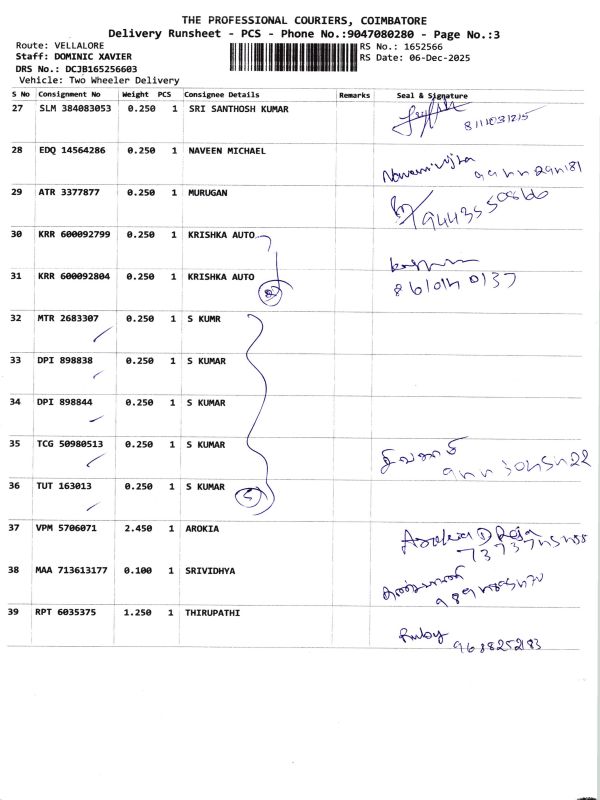 THE PROFESSIONAL COURIERS, COIMBATORE
Delivery Runsheet - PCS - Phone No.:9047080280 - Page No.:3
Route: VELLALORE
RS No.: 1652566
Staff: DOMINIC XAVIER
RS Date: 06-Dec-2025
DRS No.: DCJB165256603
Vehicle: Two Wheeler Delivery
S No Consignment No Weight PCS Consignee Details Remarks Seal & Signature
27 SLM 384083053 0.250 1 SRI SANTHOSH KUMAR
28 EDQ 14564286 0.250 1 NAVEEN MICHAEL
29 ATR 3377877 0.250 1 MURUGAN
30 KRR 600092799 0.250 1 KRISHKA AUTO
31 KRR 600092804 0.250 1 KRISHKA AUTO
32 MTR 2683307 0.250 1 S KUMR
33 DPI 898838 0.250 1 S KUMAR
34 DPI 898844 0.250 1 S KUMAR
35 TCG 50980513 0.250 1 S KUMAR
36 TUT 163013 0.250 1 S KUMAR 5
37 VPM 5706071 2.450 1 AROKIA
38 MAA 713613177 0.100 1 SRIVIDHYA
39 RPT 6035375 1.250 1 THIRUPATHI
Ruby
9688252183